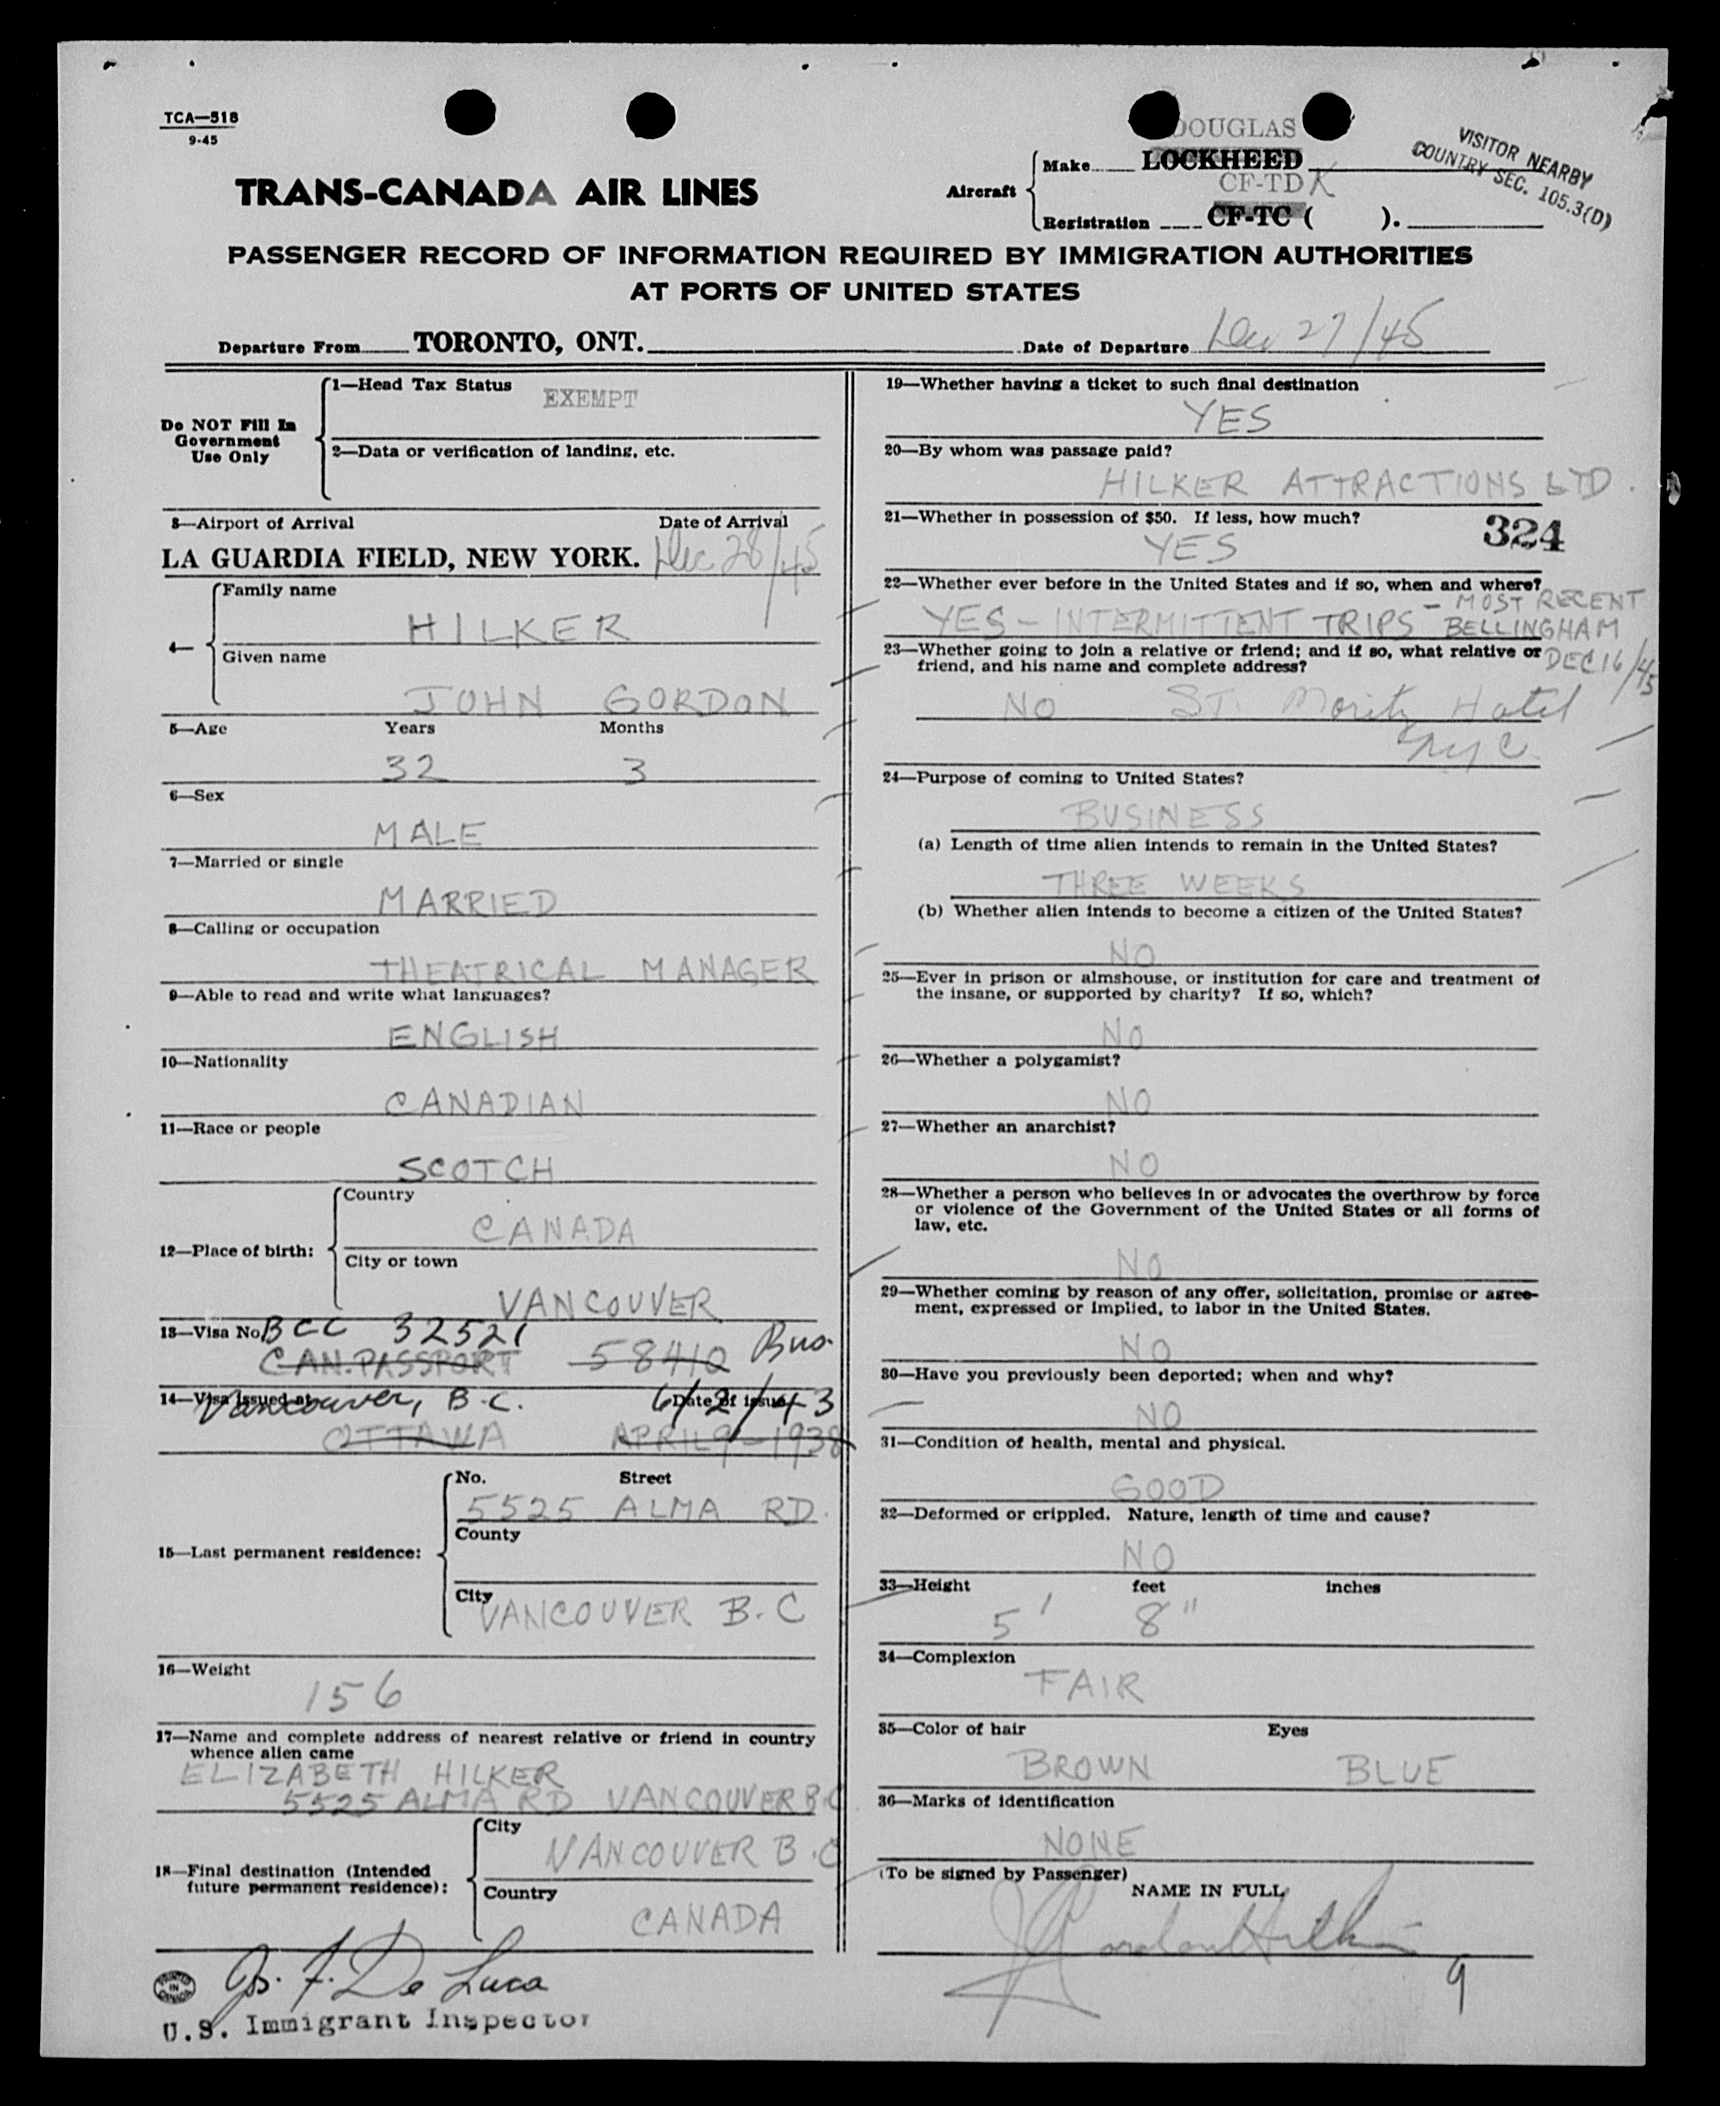 TCA—518
9-45
DOUGLAS
TRANS-CANADA AIR LINES
Aircraft
Make LOCKHEED
CF-TDK
Registration CF-TC ( ).
VISITOR NEARBY
COUNTRY SEC. 105.3(D)
PASSENGER RECORD OF INFORMATION REQUIRED BY IMMIGRATION AUTHORITIES
AT PORTS OF UNITED STATES
Departure From TORONTO, ONT. Date of Departure Dec 27/45
Do NOT Fill In
Government
Use Only
1—Head Tax Status EXEMPT
2—Data or verification of landing, etc.
3—Airport of Arrival Date of Arrival
LA GUARDIA FIELD, NEW YORK. Dec 28/45
4—
Family name
HILKER
Given name
JOHN GORDON
5—Age Years Months
32 3
6—Sex
MALE
7—Married or single
MARRIED
8—Calling or occupation
THEATRICAL MANAGER
9—Able to read and write what languages?
ENGLISH
10—Nationality
CANADIAN
11—Race or people
SCOTCH
12—Place of birth:
Country
CANADA
City or town
VANCOUVER
13—Visa No. BCC 32521 Bus.
CAN. PASSPORT 58410
14—Visa issued at Date of issue
Vancouver, B.C. 6/2/43
OTTAWA APRIL 9-1938
15—Last permanent residence:
No. Street
5525 ALMA RD.
County
City
VANCOUVER B.C
16—Weight
156
17—Name and complete address of nearest relative or friend in country
whence alien came
ELIZABETH HILKER
5525 ALMA RD VANCOUVER B.C
18—Final destination (Intended
future permanent residence):
City
VANCOUVER B.C
Country
CANADA
PRINTED
IN
CANADA
Js. F. De Luca
U.S. Immigrant Inspector
19—Whether having a ticket to such final destination
YES
20—By whom was passage paid?
HILKER ATTRACTIONS LTD.
21—Whether in possession of $50. If less, how much?
YES
324
22—Whether ever before in the United States and if so, when and where?
YES - INTERMITTENT TRIPS - MOST RECENT
BELLINGHAM
DEC 16/45
23—Whether going to join a relative or friend; and if so, what relative or
friend, and his name and complete address?
NO St. Moritz Hotel
NYC
24—Purpose of coming to United States?
BUSINESS
(a) Length of time alien intends to remain in the United States?
THREE WEEKS
(b) Whether alien intends to become a citizen of the United States?
NO
25—Ever in prison or almshouse, or institution for care and treatment of
the insane, or supported by charity? If so, which?
NO
26—Whether a polygamist?
NO
27—Whether an anarchist?
NO
28—Whether a person who believes in or advocates the overthrow by force
or violence of the Government of the United States or all forms of
law, etc.
NO
29—Whether coming by reason of any offer, solicitation, promise or agree-
ment, expressed or implied, to labor in the United States.
NO
30—Have you previously been deported; when and why?
NO
31—Condition of health, mental and physical.
GOOD
32—Deformed or crippled. Nature, length of time and cause?
NO
33—Height feet inches
5' 8"
34—Complexion
FAIR
35—Color of hair Eyes
BROWN BLUE
36—Marks of identification
NONE
(To be signed by Passenger)
NAME IN FULL
J Gordon Hilker
9